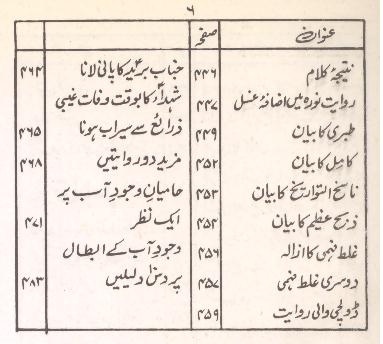 ۶
عنوان صفحہ
نتیجۂ کلام ۴۴۶
روایت نورہ میں اضافۂ غسل ۴۴۷
طبری کا بیان ۴۴۹
کامل کا بیان ۴۵۲
ناسخ التواریخ کا بیان ۴۵۳
ذبح عظیم کا بیان ۴۵۴
غلط فہمی کا ازالہ ۴۵۶
دوسری غلط فہمی ۴۵۷
ڈولچی والی روایت ۴۵۹
جناب بریر کا پانی لانا ۴۶۴
شہداء کا بوقت وفات غیبی
ذرائع سے سیراب ہونا ۴۶۵
مزید دو روایتیں ۴۶۸
حامیانِ وجودِ آب پر
ایک نظر ۴۷۱
وجودِ آب کے ابطال
پر دس دلیلیں ۴۸۳